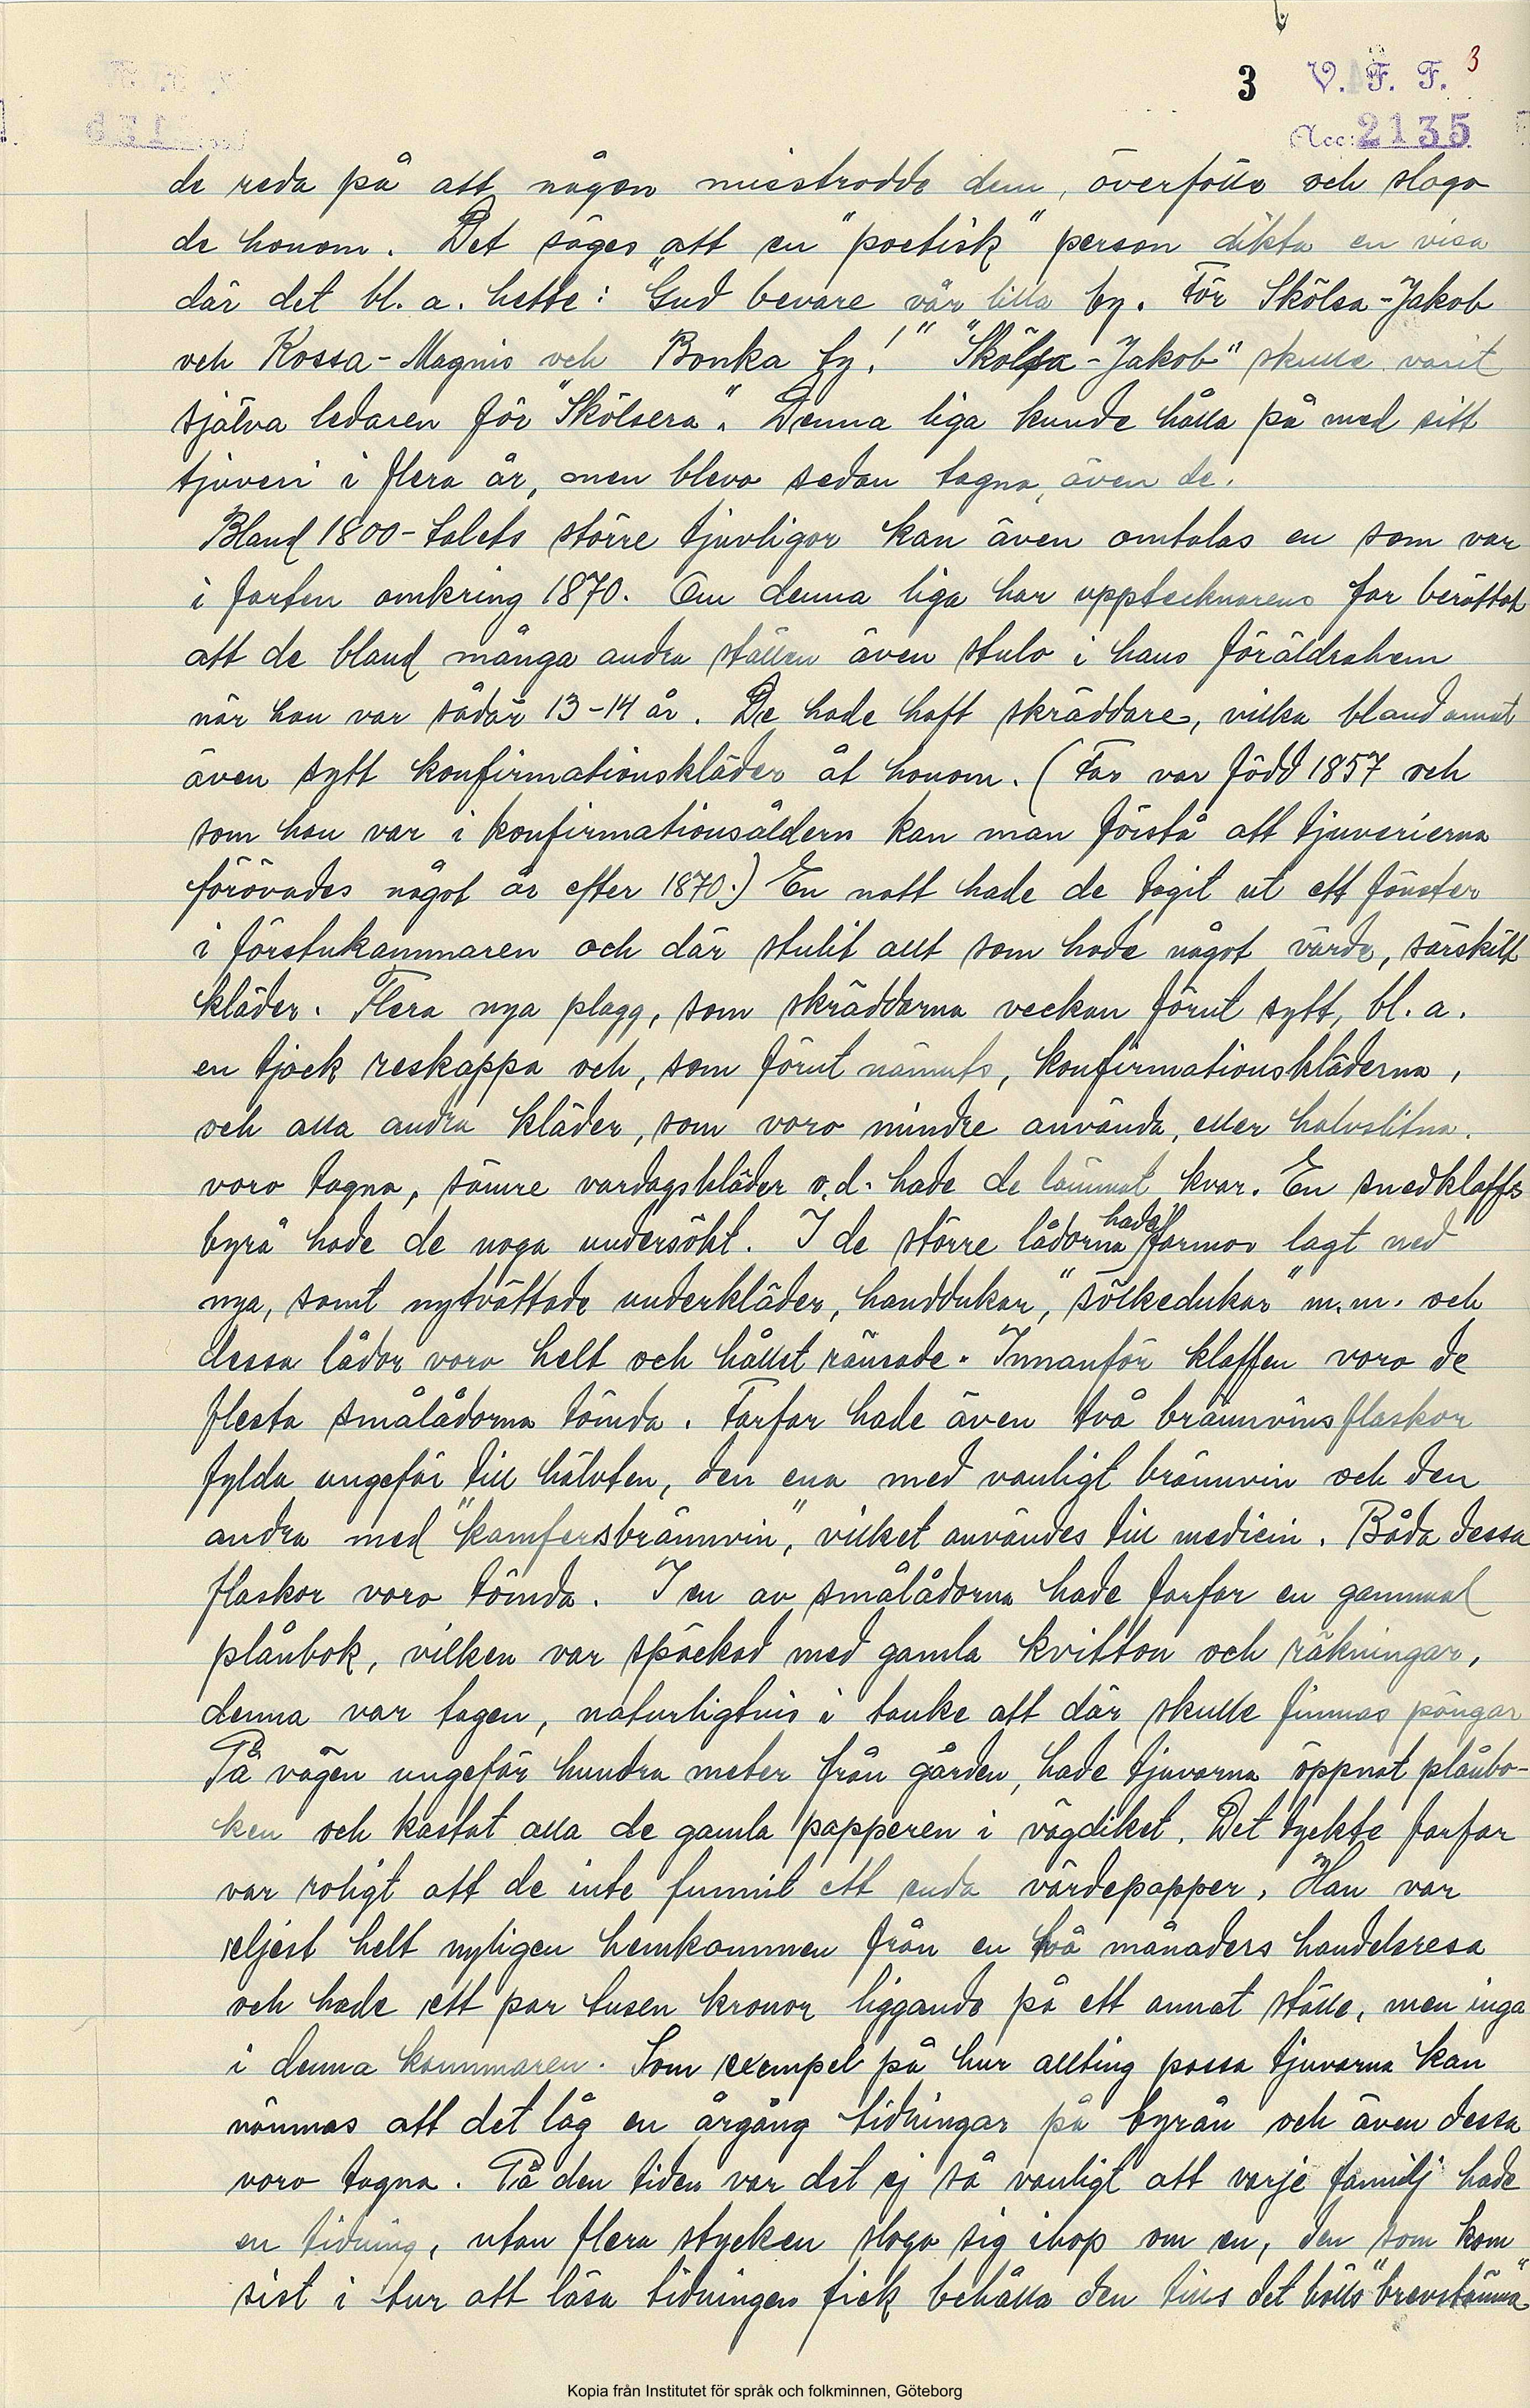 3 V. F. F. 3
Acc: 2135
de reda på att någon misstrodde dem, överföllo och slogo
de honom. Det säges att en "poetisk" person dikta en visa
där det bl. a. hette: "Gud bevare vår lilla by. För Skölsa-Jakob
och Kossa-Magnis och Bonka by!" "Skölsa-Jakob" skulle varit
själva ledaren för "Skölsera". Denna liga kunde hålla på med sitt
tjuveri i flera år, men blevo sedan tagna, även de.
Bland 1800-talets större tjuvligor kan även omtalas en som var
i farten omkring 1870. Om denna liga har upptecknarens far berättat
att de bland många andra ställen även stulo i hans föräldrahem
när han var sådär 13-14 år. De hade haft skräddare, vilka bland annat
även sytt konfirmationskläder åt honom. (Far var född 1857 och
som han var i konfirmationsåldern kan man förstå att tjuverierna
förövades något år efter 1870.) En natt hade de tagit ut ett fönster
i förstukammaren och där stulit allt som hade något värde, särskilt
kläder. Flera nya plagg, som skräddarna veckan förut sytt, bl. a.
en tjock reskappa och, som förut nämnts, konfirmationskläderna,
och alla andra kläder, som voro mindre använda, eller halvslitna.
voro tagna, sämre vardagskläder o.d. hade de lämnat kvar. En snedklaffs
byrå hade de noga undersökt. I de större lådorna hade farmor lagt ned
nya, samt nytvättade underkläder, handdukar, "sölkedukar" m.m. och
dessa lådor voro helt och hållet ränsade. Innanför klaffen voro de
flesta smålådorna tömda. Farfar hade även två brännvinsflaskor
fylda ungefär till hälvten, den ena med vanligt brännvin och den
andra med "kamfersbrännvin", vilket användes till medicin. Båda dessa
flaskor voro tömda. I en av smålådorna hade farfar en gammal
plånbok, vilken var späckad med gamla kvitton och räkningar,
denna var tagen, naturligtvis i tanke att där skulle finnas pängar
På vägen ungefär hundra meter från gården, hade tjuvarna öppnat plånbo-
ken och kastat alla de gamla papperen i vägdiket. Det tyckte farfar
var roligt att de inte funnit ett enda värdepapper. Han var
eljest helt nyligen hemkommen från en två månaders handelsresa
och hade ett par tusen kronor liggande på ett annat ställe, men inga
i denna kammaren. Som exempel på hur allting passa tjuvarna kan
nämnas att det låg en årgång tidningar på byrån och även dessa
voro tagna. På den tiden var det ej så vanligt att varje familj hade
en tidning, utan flera stycken slogo sig ihop om en, den som kom
sist i tur att läsa tidningen fick behålla den tills det hölls "brevstämma"
Kopia från Institutet för språk och folkminnen, Göteborg